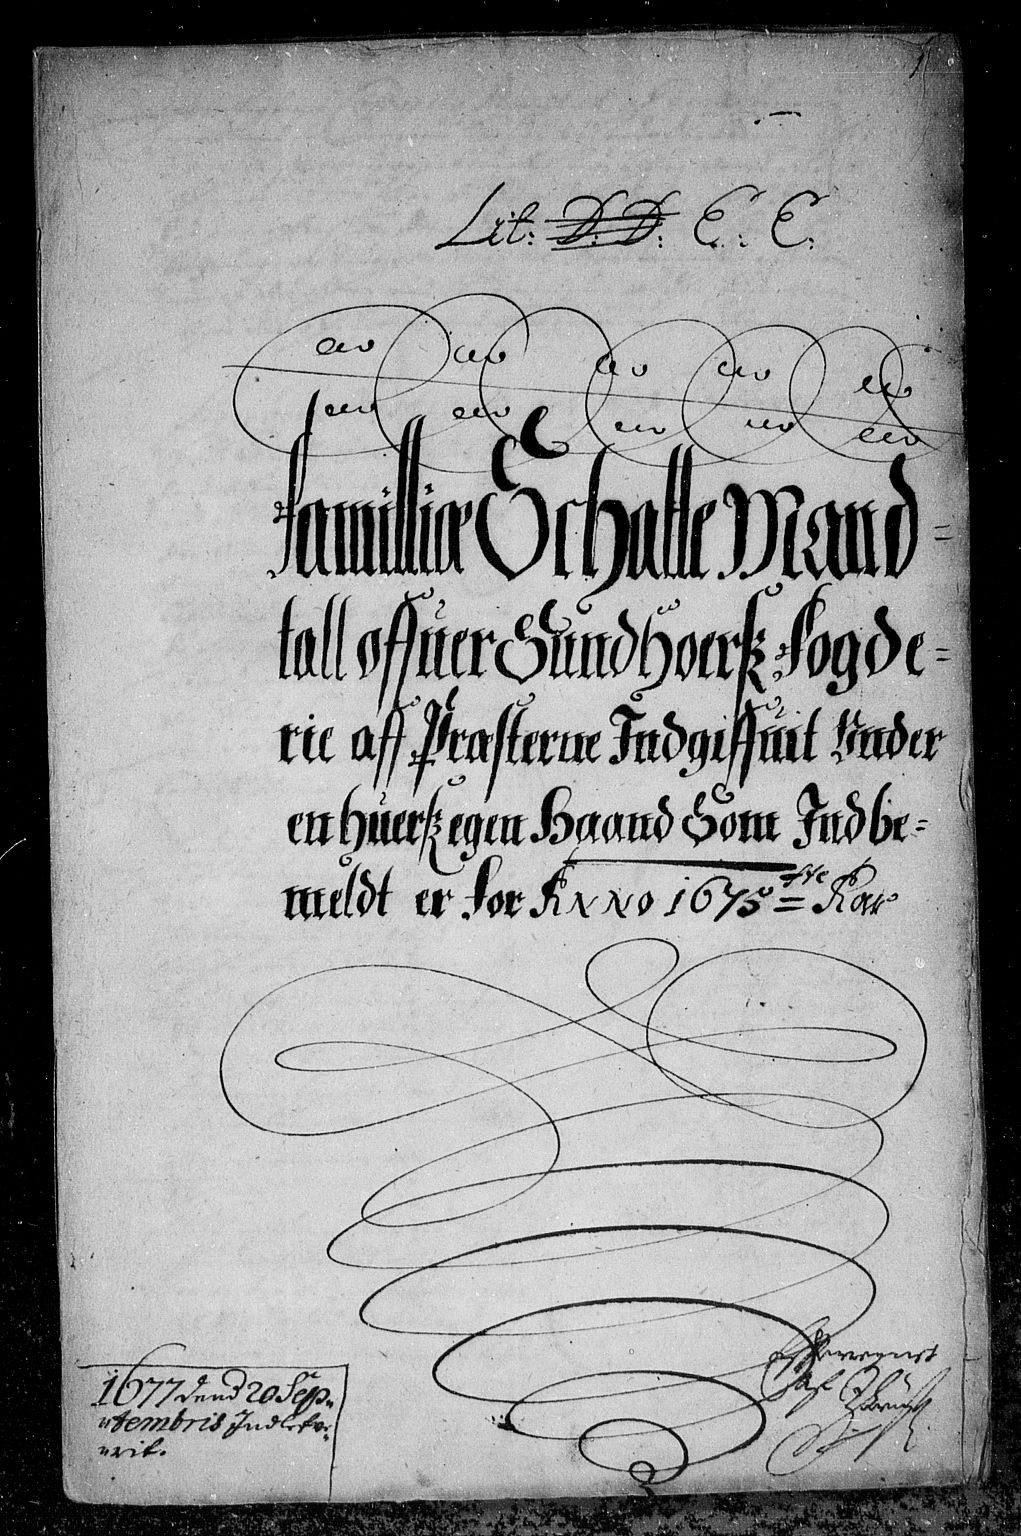 1
Lit: D: D: E: E:
Familliæ Schatte Mand=
tall offuer Sundhoerß Fogde=
rie aff Præsterne Indgiffuit Under
en huerß egen Haand Som Indbe=
meldt er for Anno 1675 = Aar
1677 dend 20 Sep=
tembris Indlefve=
rit.